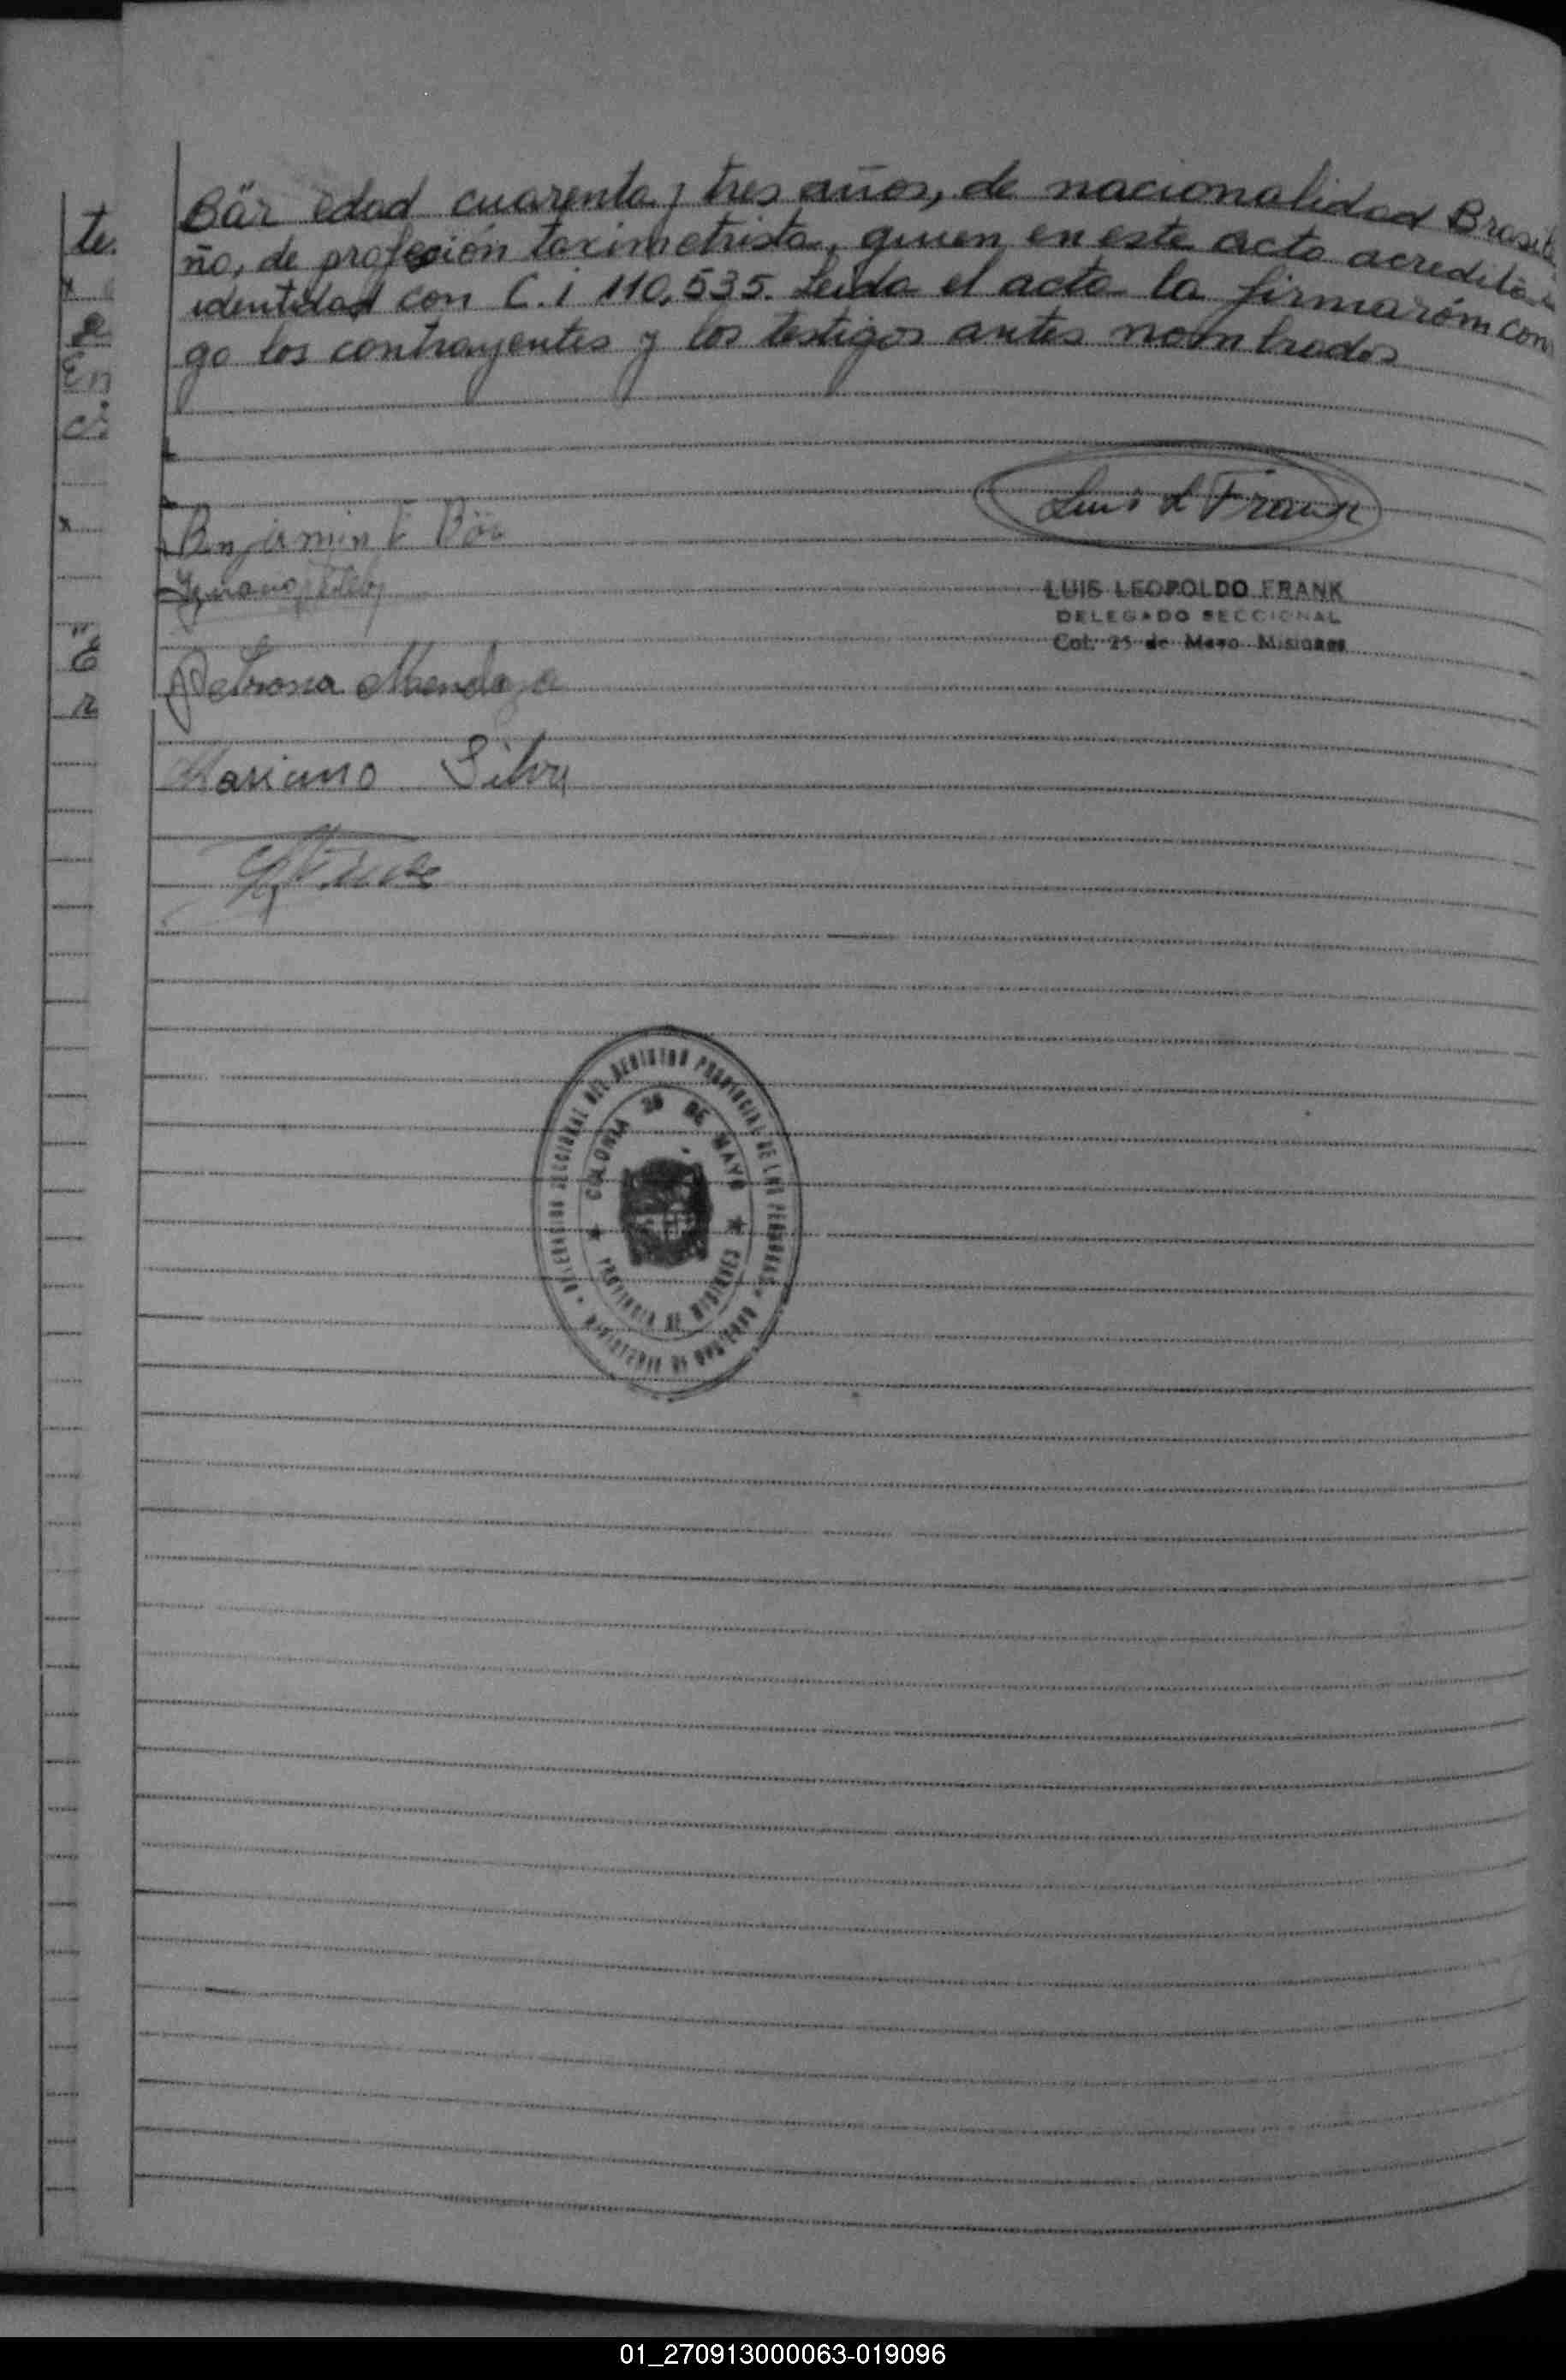 te.
x
e
En
ci
x
E
r
Bär edad cuarenta y tres años, de nacionalidad Brasile
ño, de profesión taximetrista, quien en este acto acredita
identidad con C. i 110,535. Leida el acta la firmarón con
go los contrayentes y los testigos antes nombrados
Luis L Frank
Benjamin Bär
LUIS LEOPOLDO FRANK
DELEGADO SECCIONAL
Col. 25 de Mayo Misiones
Petrona Mendoza
Mariano Silva
DELEGACION SECCIONAL DEL REGISTRO PROVINCIAL DE LAS PERSONAS
MINISTERIO DE GOBIERNO
COLONIA 25 DE MAYO
PROVINCIA DE MISIONES
01_270913000063-019096